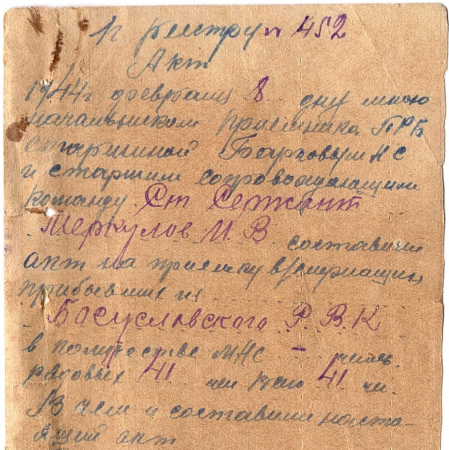 к реестру № 452
Акт
1944 г февраля 8 дня мною
начальником приемника ПРБ
старшиной
и старшим сопровождающим
команду Ст Сержант
Меркулов И. В. составили
акт на приемку в/
прибывших из
Богусловского Р. В. К
в количестве МНС –
рядовых 41 чел 41 чел.
В чем и составили насто-
ящий акт